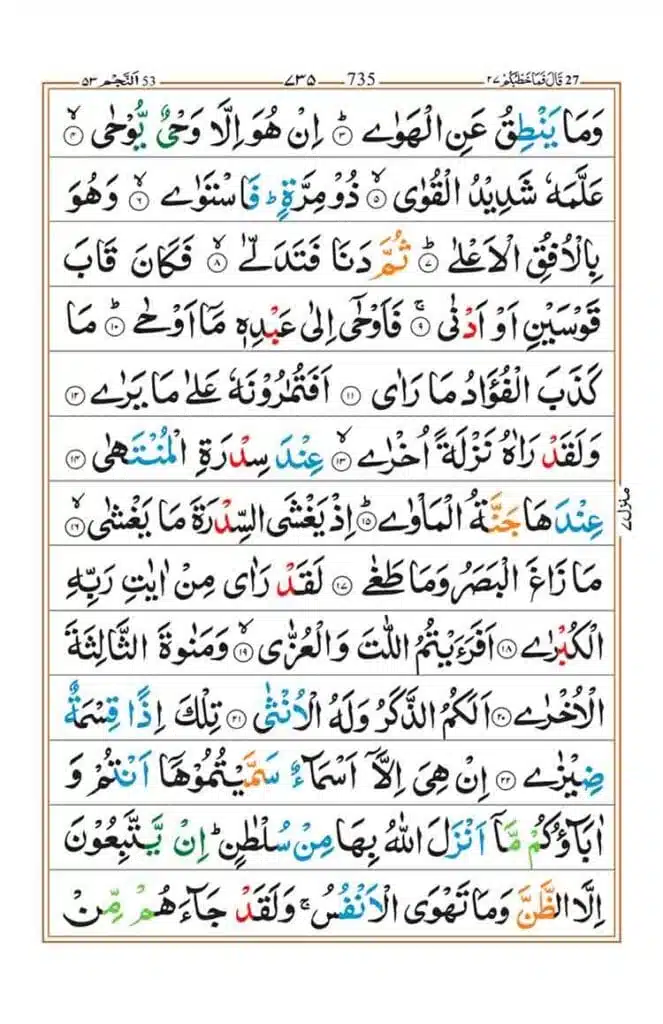 ٢٧ قَالَ فَمَا خَطْبُكُمْ 27 735 ٧٣٥ ٥٣ اَلنَّجْم 53
وَمَا يَنْطِقُ عَنِ الْهَوٰى ۳ اِنْ هُوَ اِلَّا وَحْىٌ يُّوْحٰى ۴
عَلَّمَهٗ شَدِيْدُ الْقُوٰى ۵ ذُوْ مِرَّةٍ ؕ فَاسْتَوٰى ۶ وَهُوَ
بِالْاُفُقِ الْاَعْلٰى ۷ ثُمَّ دَنَا فَتَدَلّٰى ۸ فَكَانَ قَابَ
قَوْسَيْنِ اَوْ اَدْنٰى ۹ فَاَوْحٰۤى اِلٰى عَبْدِهٖ مَاۤ اَوْحٰى ۱۰ مَا
كَذَبَ الْفُؤَادُ مَا رَاٰى ۱۱ اَفَتُمٰرُوْنَهٗ عَلٰى مَا يَرٰى ۱۲
وَلَقَدْ رَاٰهُ نَزْلَةً اُخْرٰى ۱۳ عِنْدَ سِدْرَةِ الْمُنْتَهٰى ۱۴
عِنْدَهَا جَنَّةُ الْمَاْوٰى ۱۵ اِذْ يَغْشَى السِّدْرَةَ مَا يَغْشٰى ۱۶
مَا زَاغَ الْبَصَرُ وَمَا طَغٰى ۱۷ لَقَدْ رَاٰى مِنْ اٰيٰتِ رَبِّهِ
الْكُبْرٰى ۱۸ اَفَرَءَيْتُمُ اللّٰتَ وَالْعُزّٰى ۱۹ وَمَنٰوةَ الثَّالِثَةَ
الْاُخْرٰى ۲۰ اَلَكُمُ الذَّكَرُ وَلَهُ الْاُنْثٰى ۲۱ تِلْكَ اِذًا قِسْمَةٌ
ضِيْزٰى ۲۲ اِنْ هِىَ اِلَّاۤ اَسْمَآءٌ سَمَّيْتُمُوْهَاۤ اَنْتُمْ وَ
اٰبَآؤُكُمْ مَّاۤ اَنْزَلَ اللّٰهُ بِهَا مِنْ سُلْطٰنٍ ؕ اِنْ يَّتَّبِعُوْنَ
اِلَّا الظَّنَّ وَمَا تَهْوَى الْاَنْفُسُ ۚ وَلَقَدْ جَآءَهُمْ مِّنْ
منزل ٧